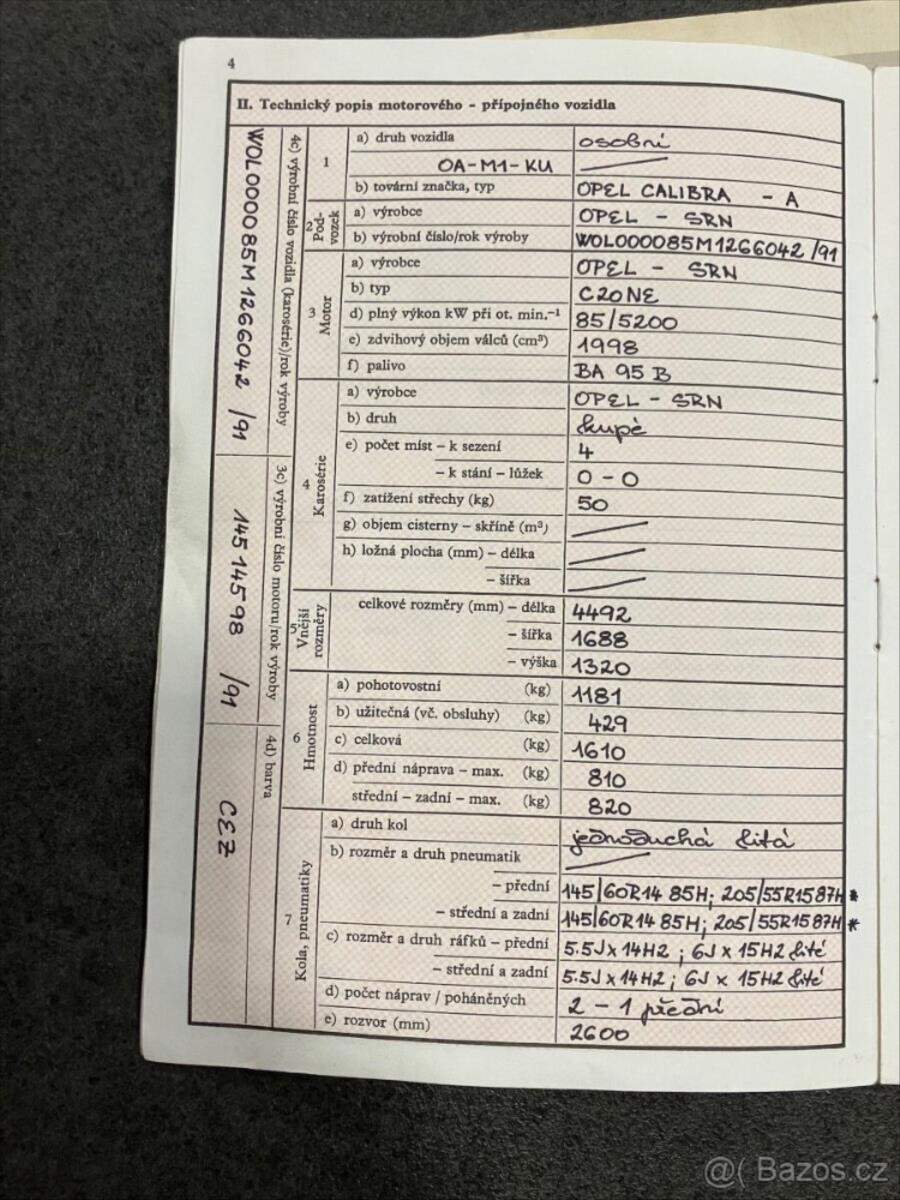 4
II. Technický popis motorového - přípojného vozidla
4c) výrobní číslo vozidla (karosérie)/rok výroby
WOL000085M1266042 /91
3c) výrobní číslo motoru/rok výroby
14514598 /91
4d) barva
CEZ
1 a) druh vozidla osobní
OA-M1-KU
b) tovární značka, typ OPEL CALIBRA - A
2 Pod-vozek
a) výrobce OPEL - SRN
b) výrobní číslo/rok výroby WOL000085M1266042/91
3 Motor
a) výrobce OPEL - SRN
b) typ C20NE
d) plný výkon kW při ot. min.⁻¹ 85/5200
e) zdvihový objem válců (cm³) 1998
f) palivo BA 95 B
4 Karosérie
a) výrobce OPEL - SRN
b) druh kupé
e) počet míst – k sezení 4
– k stání – lůžek 0 - 0
f) zatížení střechy (kg) 50
g) objem cisterny – skříně (m³)
h) ložná plocha (mm) – délka
– šířka
5 Vnější rozměry
celkové rozměry (mm) – délka 4492
– šířka 1688
– výška 1320
6 Hmotnost
a) pohotovostní (kg) 1181
b) užitečná (vč. obsluhy) (kg) 429
c) celková (kg) 1610
d) přední náprava – max. (kg) 810
střední – zadní – max. (kg) 820
7 Kola, pneumatiky
a) druh kol jednoduchá litá
b) rozměr a druh pneumatik
– přední 145/60R14 85H; 205/55R15 87H *
– střední a zadní 145/60R14 85H; 205/55R15 87H *
c) rozměr a druh ráfků – přední 5.5J x 14H2 ; 6J x 15H2 lité
– střední a zadní 5.5J x 14H2 ; 6J x 15H2 lité
d) počet náprav / poháněných 2 - 1 přední
e) rozvor (mm) 2600
@( Bazos.cz